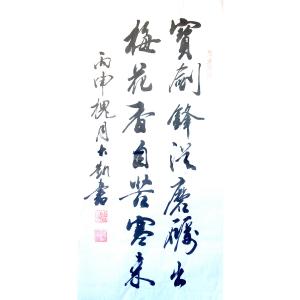 寶劍鋒從磨礪出
梅花香自苦寒來
丙申槐月大勤書